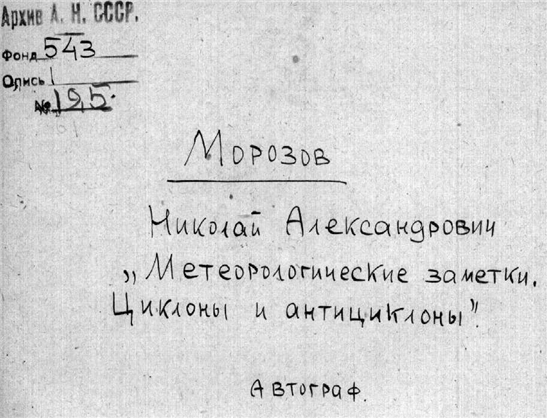 Архив А. Н. СССР.
Фонд 543
Опись 1
№ 195.
Морозов
Николай Александрович
„Метеорологические заметки.
Циклоны и антициклоны”.
Автограф.